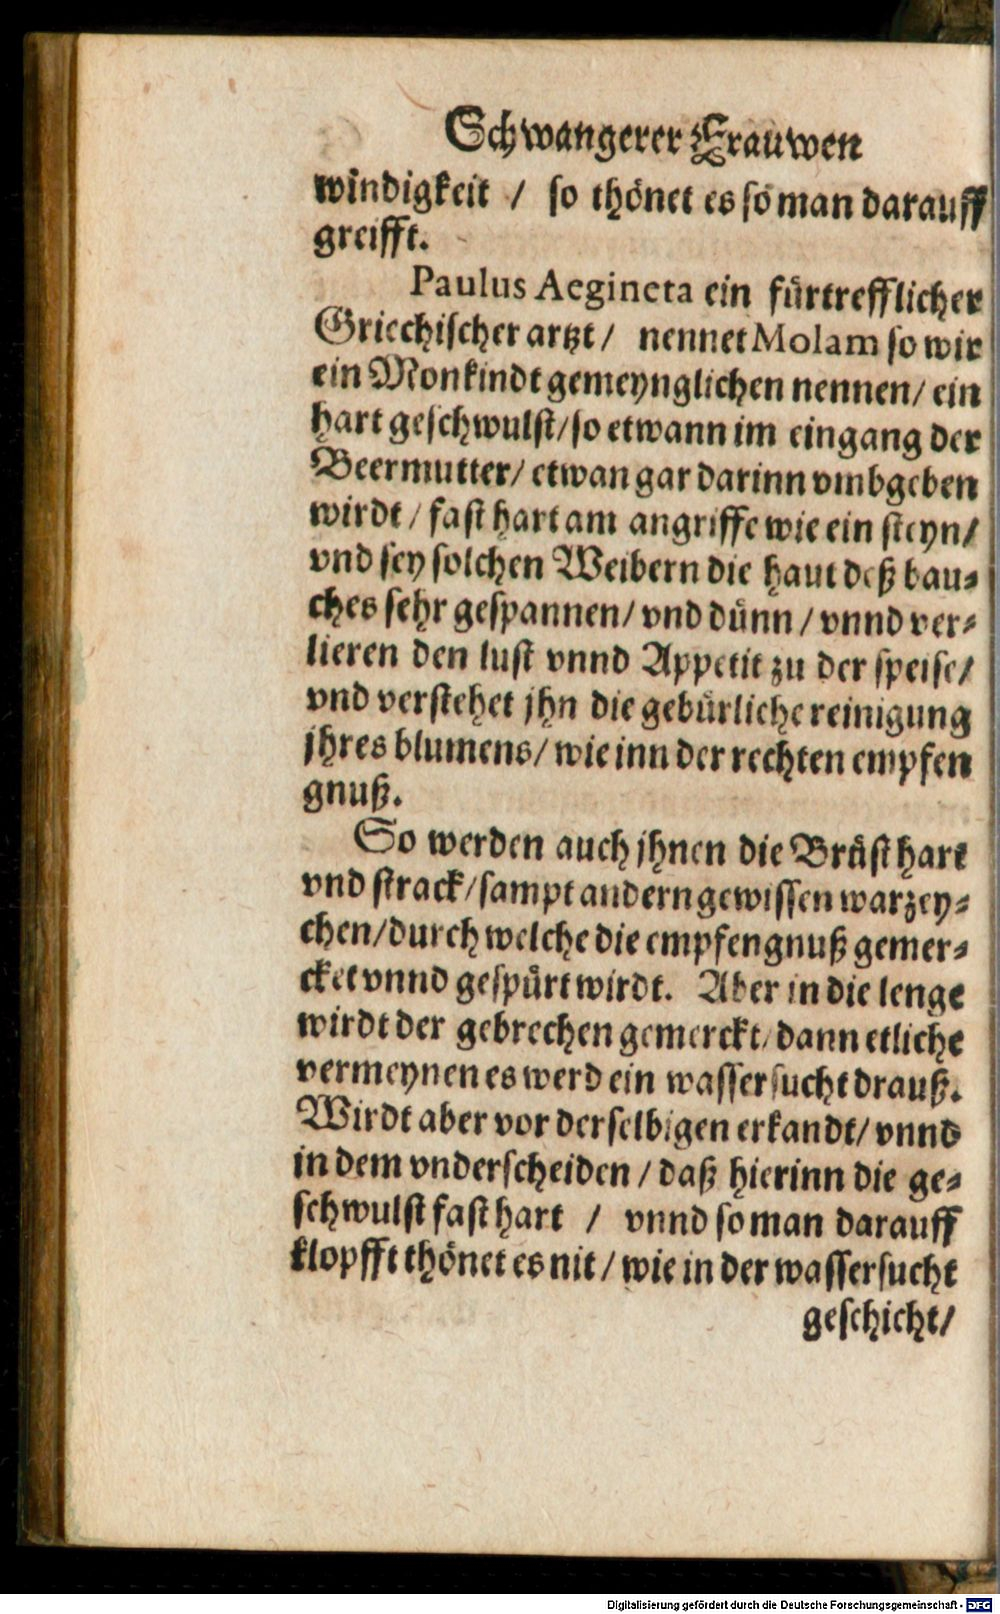 Schwangerer Frauwen
windigkeit / so thönet es so man darauff
greifft.
Paulus Aegineta ein fürtrefflicher
Griechischer artzt / nennet Molam so wir
ein Monkindt gemeynglichen nennen / ein
hart geschwulst / so etwann im eingang der
Beermutter / etwan gar darinn vmbgeben
wirdt / fast hart am angriffe wie ein steyn /
vnd sey solchen Weibern die haut deß bau-
ches sehr gespannen / vnd dünn / vnnd ver-
lieren den lust vnnd Appetit zu der speise /
vnd verstehet jhn die gebürliche reinigung
jhres blumens / wie inn der rechten empfen
gnuß.
So werden auch jhnen die Brüst hart
vnd strack / sampt andern gewissen warzey-
chen / durch welche die empfengnuß gemer-
cket vnnd gespürt wirdt. Aber in die lenge
wirdt der gebrechen gemerckt / dann etliche
vermeynen es werd ein wassersucht drauß.
Wirdt aber vor derselbigen erkandt / vnnd
in dem vnderscheiden / daß hierinn die ge-
schwulst fast hart / vnnd so man darauff
klopfft thönet es nit / wie in der wassersucht
geschicht /
Digitalisierung gefördert durch die Deutsche Forschungsgemeinschaft - DFG